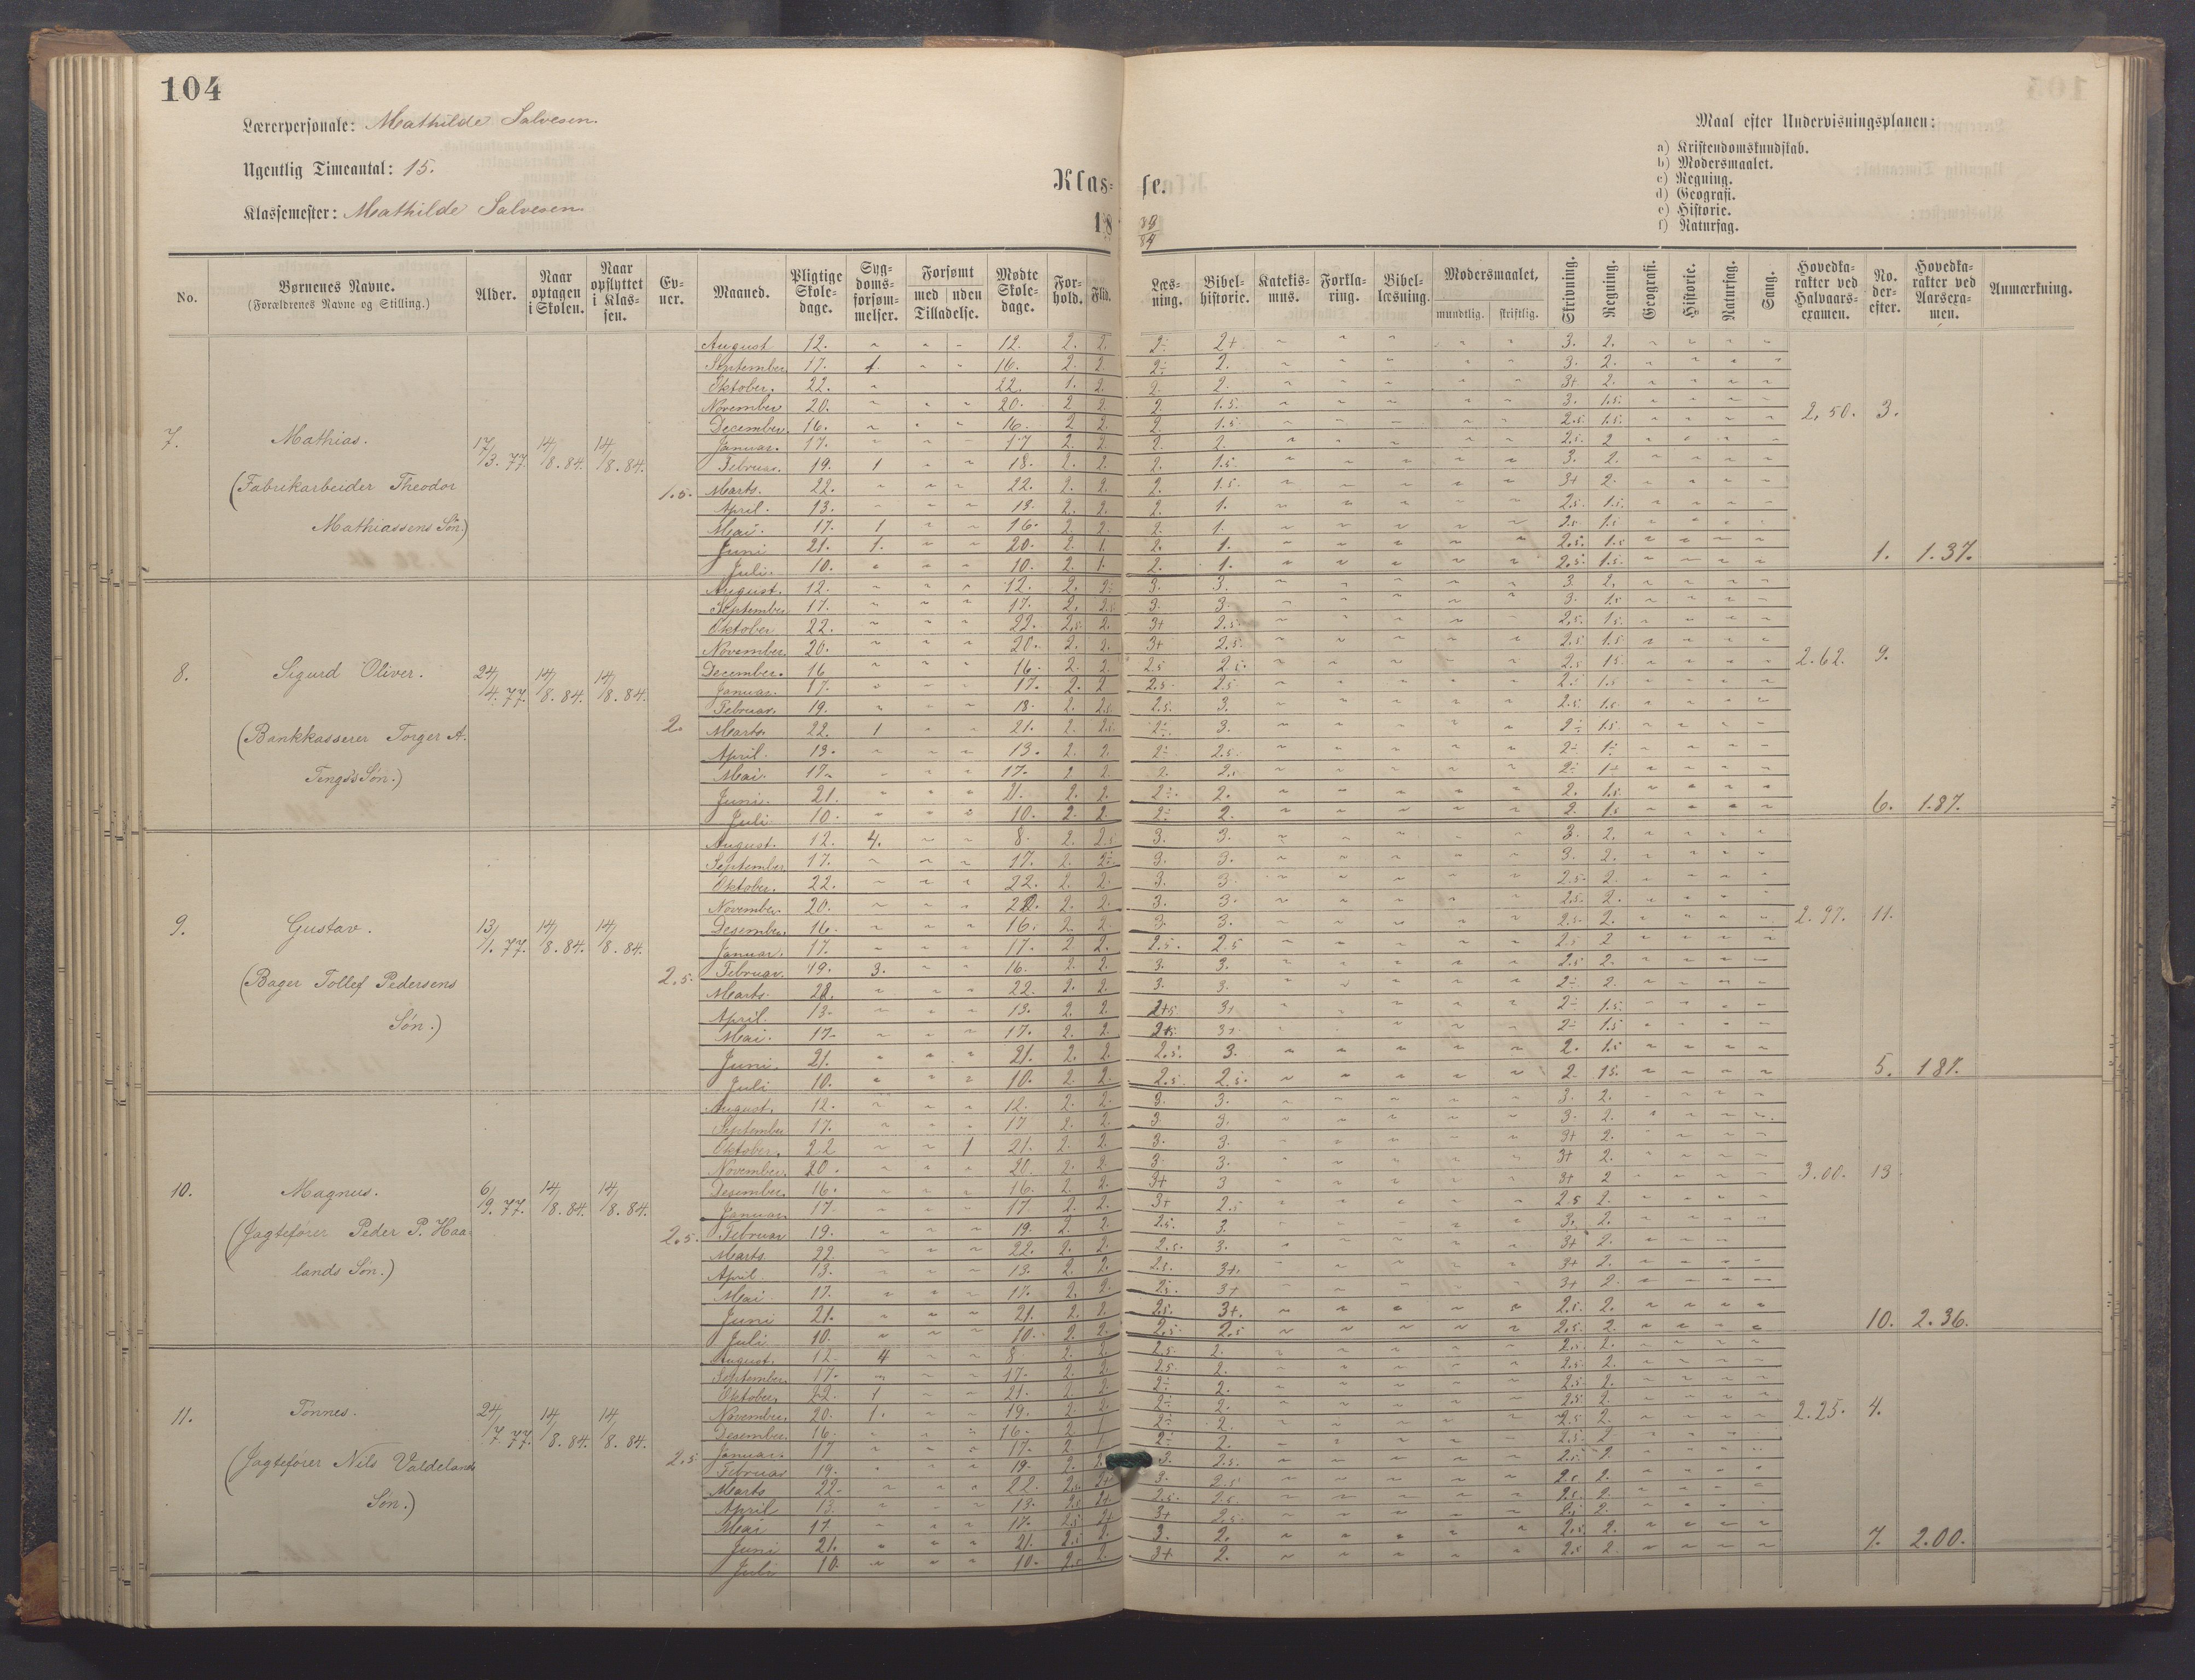 104
Lærerpersonale: Mathilde Salvesen.
Ugentlig Timeantal: 15.
Klassemester: Mathilde Salvesen
Klas- se.
18 83/84
Maal efter Undervisningsplanen:
a) Kristendomskundskab.
b) Modersmaalet.
c) Regning.
d) Geografi.
e) Historie.
f) Naturfag.
No. Børnenes Navne. (Forældrenes Navne og Stilling.) Alder. Naar optagen i Skolen. Naar opflyttet i Klassen. Evner. Maaned. Pligtige Skoledage. Sygdomsforsømmelser. Forsømt med uden Tilladelse. Mødte Skoledage. Forhold. Flid. Læsning. Bibelhistorie. Katekismus. Forklaring. Bibellæsning. Modersmaalet, mundtlig. skriftlig. Skrivning. Regning. Geografi. Historie. Naturfag. Sang. Hovedkarakter ved Halvaarsexamen. No. derefter. Hovedkarakter ved Aarsexamen. Anmærkning.
7. Mathias. 17/3. 77. 14/8. 84. 14/8. 84. 1.5.
(Fabrikarbeider Theodor
Mathiassens Søn.)
August 12. 12. 2. 2. 2÷ 2+ 3. 2.
September 17. 1. 16. 2. 2. 2÷ 2. 3. 2.
Oktober. 22. 22. 1. 2. 2. 2. 3+ 2.
November 20. 20. 2 2. 2. 1.5. 3. 1.5.
December. 16. 16. 2 2. 2. 1.5 2.5. 1.5.
Januar. 17. 17 2. 2. 2. 2. 2.5. 2
Februar. 19. 1 18. 2. 2. 2. 1.5. 3. 2.
Marts. 22. 22. 2. 2. 2. 1.5. 3+ 2.
April. 13. 13. 2. 2. 2. 1. 2.5. 1.5.
Mai. 17. 1 16. 2. 2. 2. 1. 2.5 1.5
Juni 21. 1. 20. 2. 1. 2. 1. 2.5. 1.5
Juli. 10. 10. 2. 1. 2. 1. 2.5. 1.5.
2,50. 3.
1. 1.37.
8. Sigurd Oliver. 24/4. 77. 14/8. 84. 14/8. 84. 2.
(Bankkasserer Torger A.
Tengs's Søn.)
August. 12. 12. 2. 2÷ 3. 3. 3 2.
September 17. 17. 2. 2.5 3. 3. 3. 1.5
Oktober 22. 22. 2.5. 2. 3+ 2.5. 2.5. 1.5.
November 20. 20. 2. 2. 3+ 2.5. 2.5 1.5.
December. 16 16. 2. 2 2.5 2.5. 2.5 1.5.
Januar. 17. 17. 2. 2 2.5. 2.5. 2.5 1.5
Februar. 19. 18. 2. 2.5 2.5. 3. 2.5 1.5.
Marts. 22. 1 21. 2. 2.5 2÷. 3. 2÷ 1.5.
April. 13. 13. 2. 2. 2÷ 2.5. 2÷ 1÷
Mai. 17. 17. 2 2. 2. 2.5 2÷ 1÷
Juni. 21. 21. 2. 2. 2÷. 2. 2. 1.5.
Juli. 10. 10. 2. 2. 2÷ 2. 2. 1.5
2.62. 9.
6. 1.87.
9. Gustav. 13/1. 77. 14/8. 84. 14/8. 84. 2,5.
(Bager Tollef Pedersens
Søn.)
August. 12. 4. 8. 2. 2.5 3. 3. 3. 2.
September 17. 17. 2. 2÷ 3. 3. 3. 2.
Oktober. 22. 22. 2. 2. 3. 3. 2.5. 2.
November. 20. 20. 2. 2. 3. 3. 2.5. 2.
Desember. 16. 16. 2. 2. 3. 3. 2.5. 2.
Januar. 17. 17. 2 2. 2.5. 2.5 2.5 2
Februar. 19. 3. 16. 2. 2. 3. 3. 2.5 2.
Marts. 22. 22. 2. 2. 3. 3. 2÷ 2.
April. 13. 13. 2. 2. 3+ 2÷ 1.5.
Mai. 17 17. 2. 2. 3+. 2÷ 1.5
Juni. 21. 21. 2. 2. 2.5. 3. 2. 1.5
Juli 10. 10. 2. 2. 2.5. 2.5. 2 1.5.
2.97. 11.
5. 1.87.
10. Magnus. 6/9. 77. 14/8. 84. 14/8. 84. 2,5.
(Jagtefører Peder P. Haa-
lands Søn.)
August. 12. 12. 2. 2. 3. 3. 3. 2.
September 17. 17 2. 2. 3. 3. 3. 2.
Oktober. 22 1 21. 2 2. 3. 3. 3+ 2.
November. 20. 20. 2. 2. 3. 3. 3+ 2.
Desember. 16. 16. 2. 2. 3+ 3 3+ 2
Januar. 17 17 2. 2. 3+ 2.5. 2.5 2.
Februar 19. 19. 2 2. 2.5. 3. 3. 2.
Marts. 22. 22. 2. 2. 2.5. 3. 3+ 2.
April. 13. 13. 2. 2. 2.5. 3+. 3+ 2.
Mai. 17. 17. 2. 2. 2.5. 3+ 3+ 2.
Juni 21. 21. 2. 2. 2.5. 3+. 2.5. 2.
Juli 10. 10. 2. 2. 2.5. 2.5 2.5. 2.
3.00. 13
10. 2.36.
11. Tönnes. 24/7. 77. 14/8. 84. 14/8. 84. 2,5.
(Jagtefører Nils Valdelands
Søn.)
August. 12. 4 8. 2. 2. 2.5. 2. 2.5. 2.
September. 17. 17. 2. 2. 2.5. 2. 2.5. 2.
Oktober. 22. 1 21. 2. 2. 2÷ 2. 2.5. 2.
November. 20. 1. 19. 2. 2. 2÷ 2. 2.5. 2.
Desember. 16. 16. 2 1 2÷ 2. 2.5 2.
Januar. 17 17. 2 1 2÷ 2. 2.5. 2
Februar 19. 19 2. 3. 2.5. 2.5. 2.
Marts 22. 22. 2.5. 2+ 3. 2.5 2.5 2.
April 13. 13. 2.5 2+ 2.5. 2.5. 2.5. 2.
Mai 17. 17. 2.5 2+ 3+ 2.5. 2.
Juni 21. 21. 2.5 2. 3. 2. 2.5. 2.
Juli 10. 10. 2.5. 2. 3+ 2. 2.5 2.
2.25. 4.
7. 2.00.